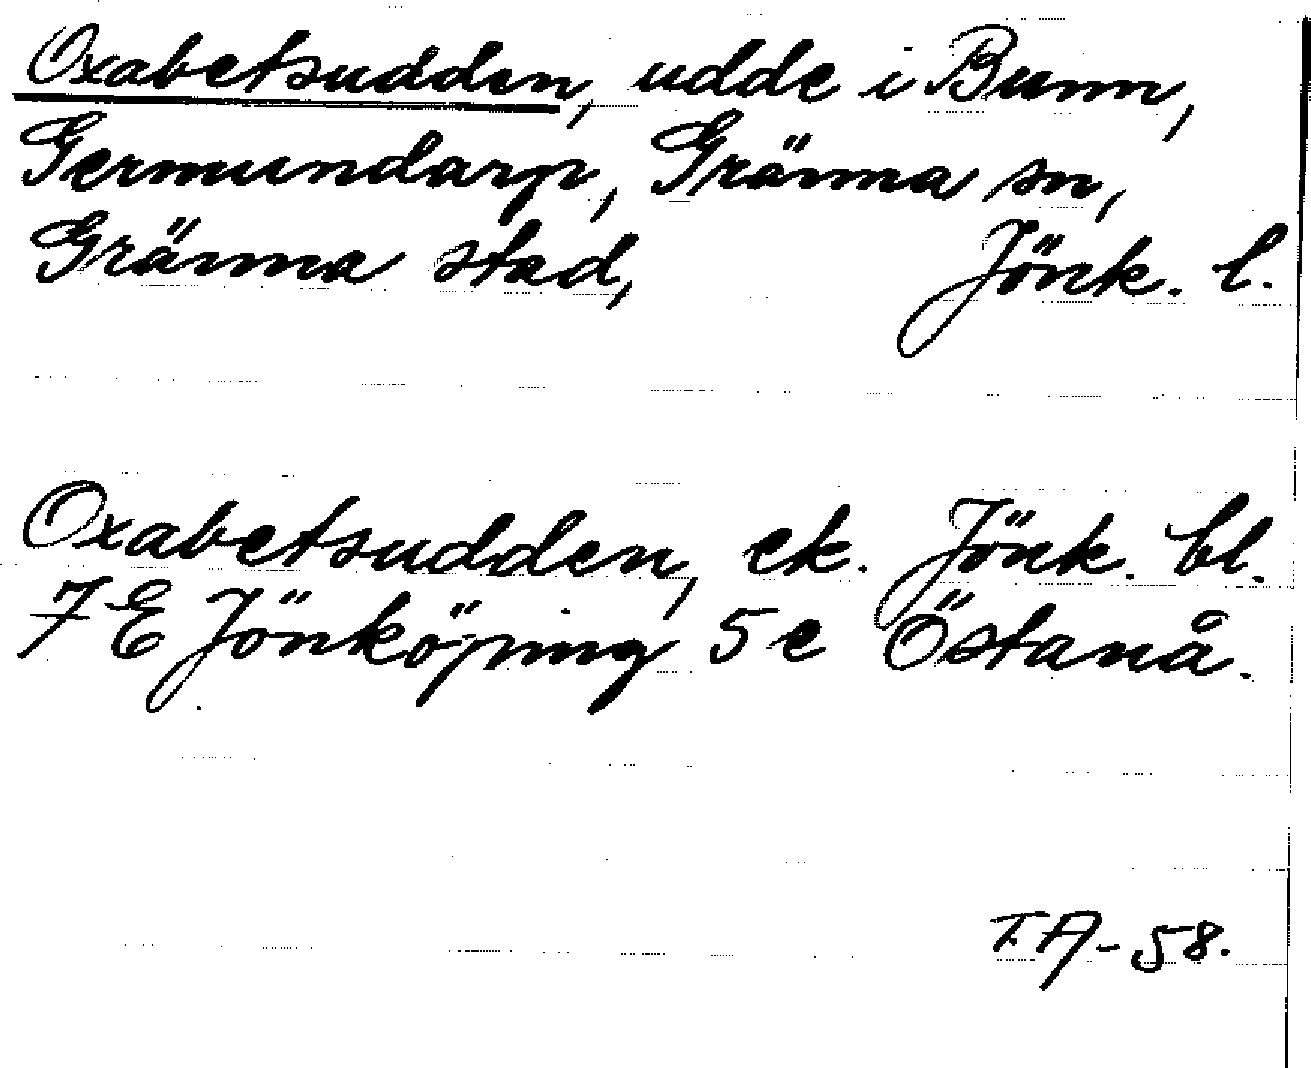 Oxabetsudden, udde i Bunn,
Germundarp, Gränna sn,
Gränna stad, Jönk. l.
Oxabetsudden, ek. Jönk. bl.
7 E Jönköping 5e Östanå.
T.A-58.